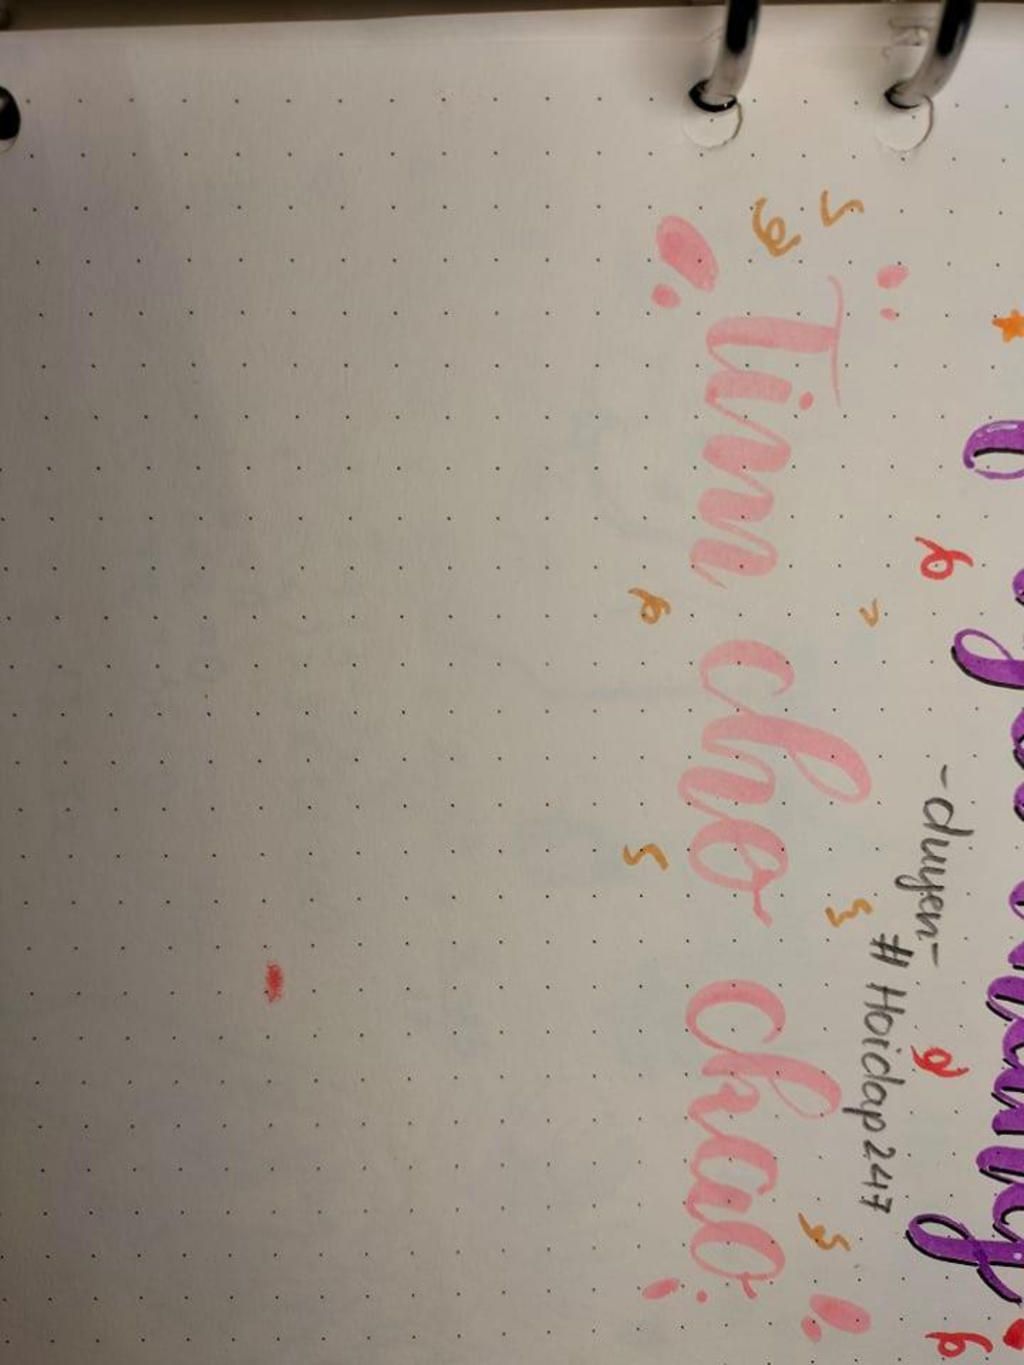 -duyen-
# Hoidap247
Tim cho chao